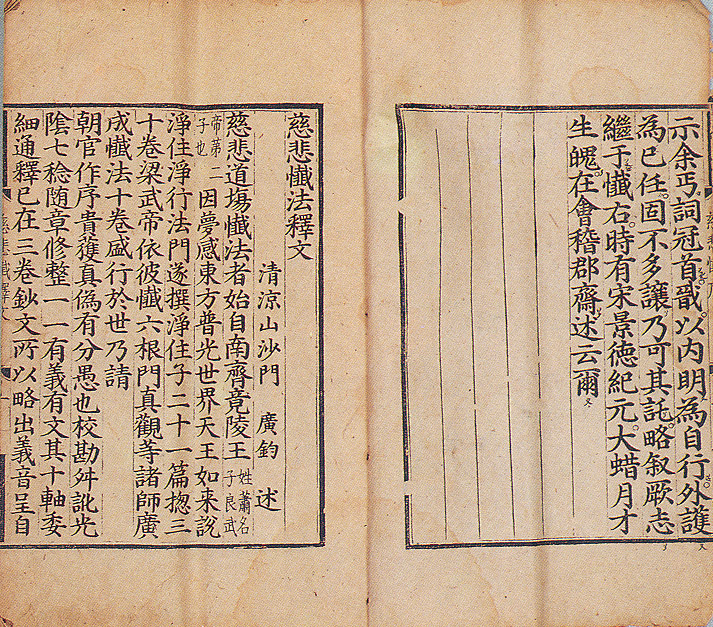 示余丐詞冠首哉以内明為自行外護
為已任固不多讓乃可其託略叙厥志
繼于懺右時有宋景德紀元大蜡月才
生魄在會稽郡齋述云爾
慈悲懺法釋文
清涼山沙門 廣鈞 述
慈悲道場懺法者始自南齊竟陵王姓蕭名子良武
帝第二子也因夢感東方普光世界天王如来說
淨住淨行法門遂撰淨住子二十一篇揔三
十卷梁武帝依彼懺六根門真觀等諸師廣
成懺法十卷盛行於世乃請
朝官作序貴獲真偽有分愚也校勘舛訛光
陰七稔随章修整一一有義有文其十軸委
細通釋已在三卷鈔文所以略出義音呈自